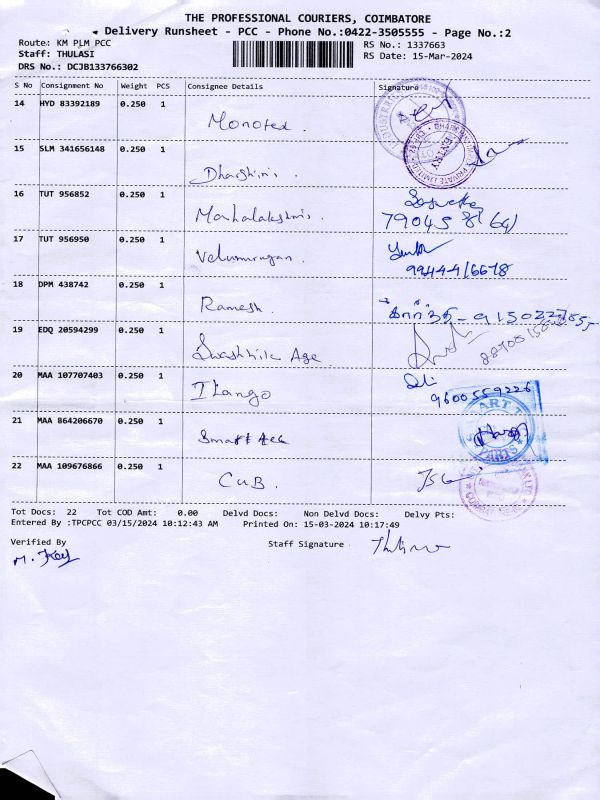 THE PROFESSIONAL COURIERS, COIMBATORE
Delivery Runsheet - PCC - Phone No.:0422-3505555 - Page No.:2
Route: KM PLM PCC RS No.: 1337663
Staff: THULASI RS Date: 15-Mar-2024
DRS No.: DCJB133766302
S No Consignment No Weight PCS Consignee Details Signature
14 HYD 83392189 0.250 1
Monoted.
15 SLM 341656148 0.250 1
ENTRY
Dharshini.
16 TUT 956852 0.250 1
Mahalakshmi.
17 TUT 956950 0.250 1
Velumurugan.
99444/6678
18 DPM 438742 0.250 1
Ramesh.
19 EDQ 20594299 0.250 1
20 MAA 107707403 0.250 1
Ilango
9600559226
21 MAA 864206670 0.250 1
PARTS
22 MAA 109676866 0.250 1
CUB.
Tot Docs: 22 Tot COD Amt: 0.00 Delvd Docs: Non Delvd Docs: Delvy Pts:
Entered By :TPCPCC 03/15/2024 10:12:43 AM Printed On: 15-03-2024 10:17:49
Verified By Staff Signature